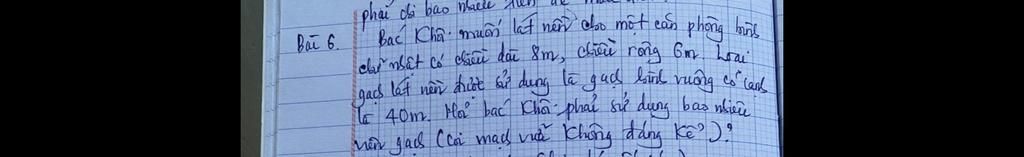 phải chi bao nhiêu tiền để
Bài 6. Bác Khôi muốn lát nền cho một căn phòng hình
chữ nhật có chiều dài 8m, chiều rộng 6m. Loại
gạch lát nền được sử dụng là gạch hình vuông có cạnh
là 40m. Hỏi bác Khôi phải sử dụng bao nhiêu
viên gạch (coi mạch vữa không đáng kể)?